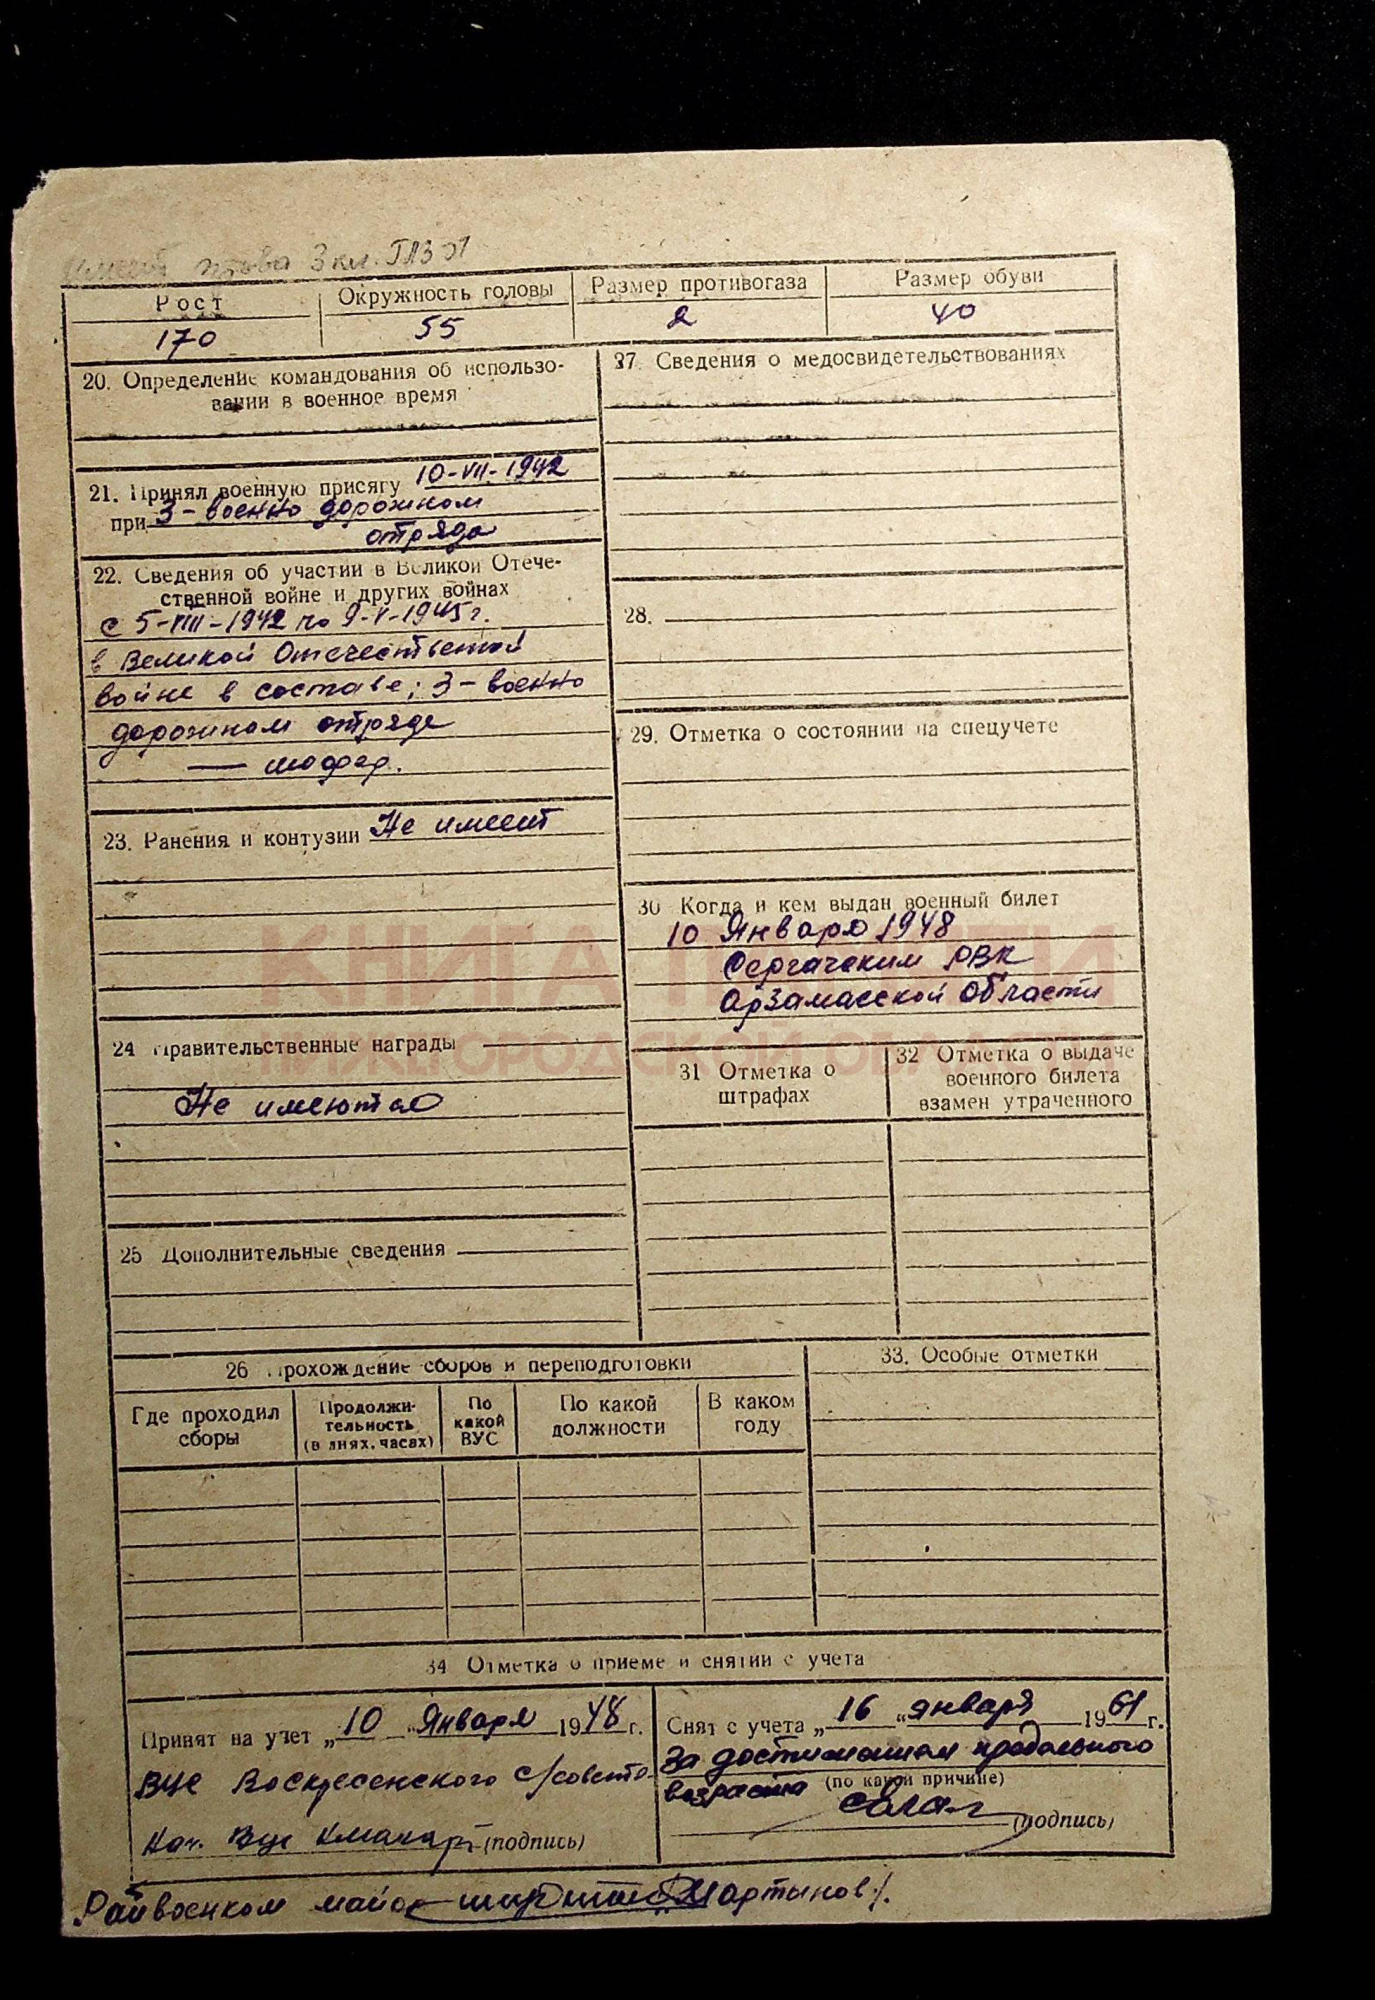 права 3 кл. ГАЗ 51
Рост
Окружность головы
Размер противогаза
Размер обуви
170
55
2
40
20. Определение командования об использо-
вании в военное время
21. Принял военную присягу 10-VII-1942
при 3-военно дорожном
отряда
22. Сведения об участии в Великой Отече-
ственной войне и других войнах
с 5-VIII-1942 по 9-V-1945 г.
в Великой Отечественной
войне в составе; 3-военно
дорожном отряде
— шофер.
23. Ранения и контузии Не имеет
24 Правительственные награды
Не имеются
25 Дополнительные сведения
27. Сведения о медосвидетельствованиях
28.
29. Отметка о состоянии на спецучете
30 Когда и кем выдан военный билет
10 Января 1948
Сергачским РВК
Арзамасской области
31 Отметка о
штрафах
32 Отметка о выдаче
военного билета
взамен утраченного
КНИГА ПАМЯТИ
НИЖЕГОРОДСКОЙ ОБЛАСТИ
26 Прохождение сборов и переподготовки
Где проходил
сборы
Продолжи-
тельность
(в днях, часах)
По
какой
ВУС
По какой
должности
В каком
году
33. Особые отметки
34 Отметка о приеме и снятии с учета
Принят на учет „10 “ Января 1948 г.
ВУС Воскресенского с/совета
Нач. ВУС (подпись)
Снят с учета „16 “ января 1961 г.
За достижением предельного
возраста (по какой причине)
(подпись)
Райвоенком майор Мартынов/.